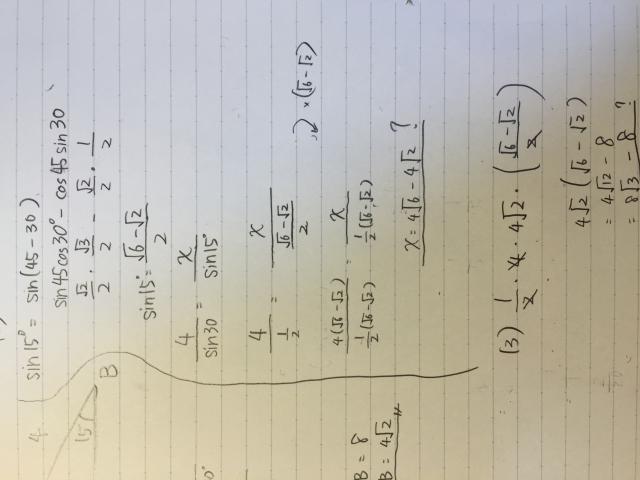 4
15
B
B = 8
B = 4√2
sin 15° = sin(45-30)
sin45cos30° - cos45 sin30
√2/2 · √3/2 - √2/2 · 1/2
sin15° = (√6-√2)/2
4/sin30 = x/sin15°
4/(1/2) = x/((√6-√2)/2)
) × (√6-√2)
4(√6-√2)/(1/2(√6-√2)) = x/(1/2(√6-√2))
x = 4√6 - 4√2 ?
(3) 1/2 · 4 · 4√2 · ((√6-√2)/2)
4√2 (√6-√2)
= 4√12 - 8
= 8√3 - 8 ?